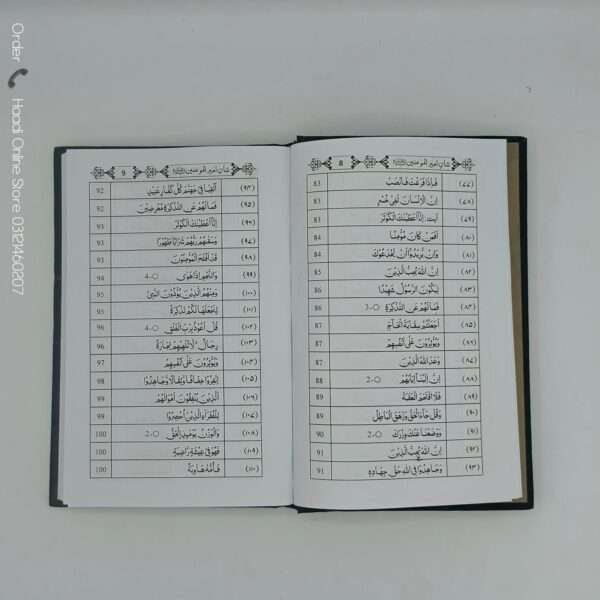 Order Haadi Online Store 03121460207
8 شان امیر المومنین
(۷۷) فَاِذَا فَرَغْتَ فَانْصَبْ 83
(۷۸) اِنَّ الْاِنْسَانَ لَفِیْ خُسْرٍ 83
(۷۹) آیت: اِنَّا اَعْطَیْنٰكَ الْكَوْثَرَ 83
(۸۰) اَفَمَنْ كَانَ مُؤْمِنًا 84
(۸۱) وَاِنْ یُّرِیْدُوْٓا اَنْ یَّخْدَعُوْكَ 84
(۸۲) اِنَّ اللّٰهَ یُحِبُّ الَّذِیْنَ 85
(۸۳) یَكُوْنَ الرَّسُوْلُ شَهِیْدًا 86
(۸۴) فَمَا لَهُمْ عَنِ التَّذْكِرَةِ 3- 86
(۸۵) اَجَعَلْتُمْ سِقَایَةَ الْحَآجِّ 87
وَیُؤْثِرُوْنَ عَلٰٓی اَنْفُسِهِمْ 87
(۸۷) وَعَدَ اللّٰهُ الَّذِیْنَ 87
(۸۸) اِنَّ اِلَیْنَآ اِیَابَهُمْ 2- 88
(۸۹) فَلَا اقْتَحَمَ الْعَقَبَةَ 89
(۹۰) وَقُلْ جَآءَ الْحَقُّ وَزَهَقَ الْبَاطِلُ 89
(۹۱) وَوَضَعْنَا عَنْكَ وِزْرَكَ 2- 90
(۹۲) اِنَّ اللّٰهَ یُحِبُّ الَّذِیْنَ 91
(۹۳) وَجَاهِدُوْا فِی اللّٰهِ حَقَّ جِهَادِهٖ 91
9 شان امیر المومنین
(۹۴) اَلْقِیَا فِیْ جَهَنَّمَ كُلَّ كَفَّارٍ عَنِیْدٍ 92
(۹۵) فَمَا لَهُمْ عَنِ التَّذْكِرَةِ مُعْرِضِیْنَ 92
(۹۶) اِنَّا اَعْطَیْنٰكَ الْكَوْثَرَ 93
(۹۷) وَسَقٰهُمْ رَبُّهُمْ شَرَابًا طَهُوْرًا 93
(۹۸) قَدْ اَفْلَحَ الْمُؤْمِنُوْنَ 93
(۹۹) وَالنَّجْمِ اِذَا هَوٰی 4- 94
(۱۰۰) وَمِنْهُمُ الَّذِیْنَ یُؤْذُوْنَ النَّبِیَّ 95
(۱۰۱) لِنَجْعَلَهَا لَكُمْ تَذْكِرَةً 95
(۱۰۲) قُلْ اَعُوْذُ بِرَبِّ الْفَلَقِ 4- 96
(۱۰۳) رِجَالٌ لَّا تُلْهِیْهِمْ تِجَارَةٌ 96
وَیُؤْثِرُوْنَ عَلٰٓی اَنْفُسِهِمْ 97
(۱۰۵) اِنْفِرُوْا خِفَافًا وَّثِقَالًا وَّجَاهِدُوْا 98
(۱۰۶) اَلَّذِیْنَ یُنْفِقُوْنَ اَمْوَالَهُمْ 99
(۱۰۷) لِلْفُقَرَآءِ الَّذِیْنَ اُحْصِرُوْا 99
(۱۰۸) وَالْوَزْنُ یَوْمَئِذِ نِ الْحَقُّ 2- 100
(۱۰۹) فَهُوَ فِیْ عِیْشَةٍ رَّاضِیَةٍ 100
(۱۱۰) فَاُمُّهٗ هَاوِیَةٌ 100